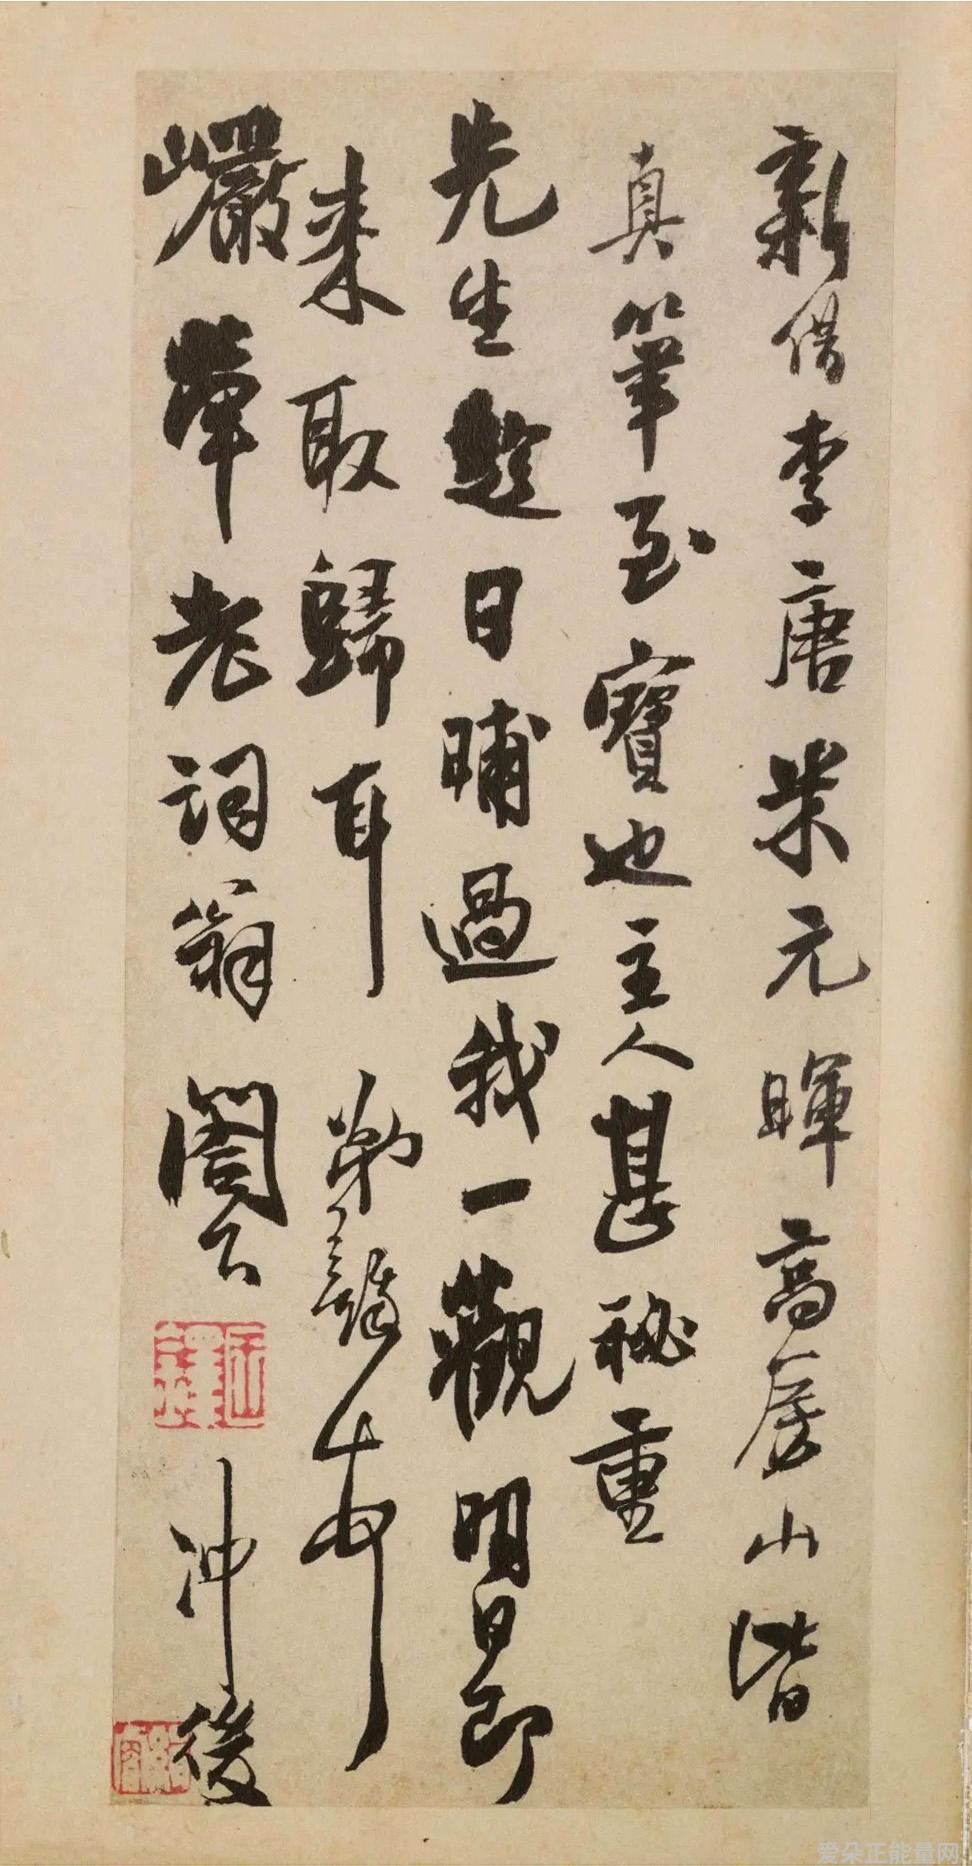 新借李唐米元暉高房山皆
真筆至寶也主人甚秘重
先生趁日晡過我一觀明日即
来取歸耳 弟
巗犖老詞翁 閣下 冲 後
爱朵正能量网